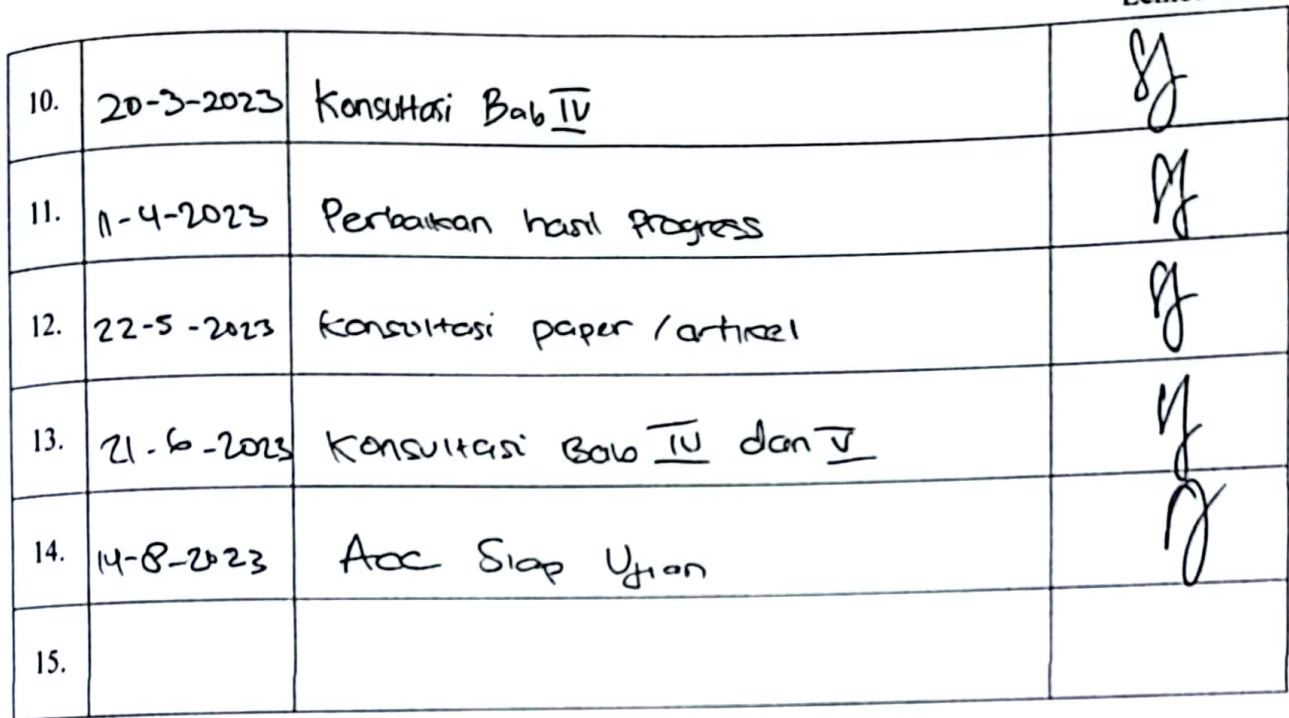 10. 20-3-2023 Konsultasi Bab IV
11. 11-4-2023 Perbaikan hasil Progress
12. 22-5-2023 Konsultasi paper / artikel
13. 21-6-2023 Konsultasi Bab IV dan V
14. 14-8-2023 Acc Siap Ujian
15.